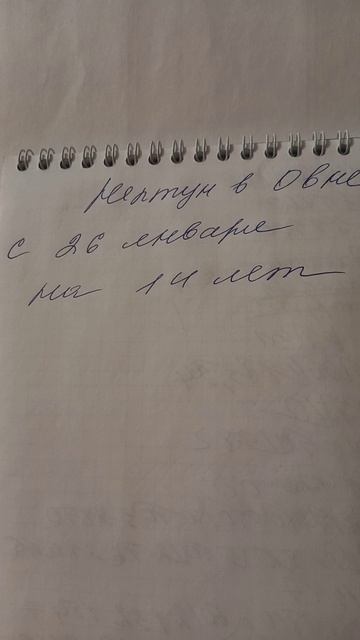 Нептун в Овне
с 26 января
на 14 лет